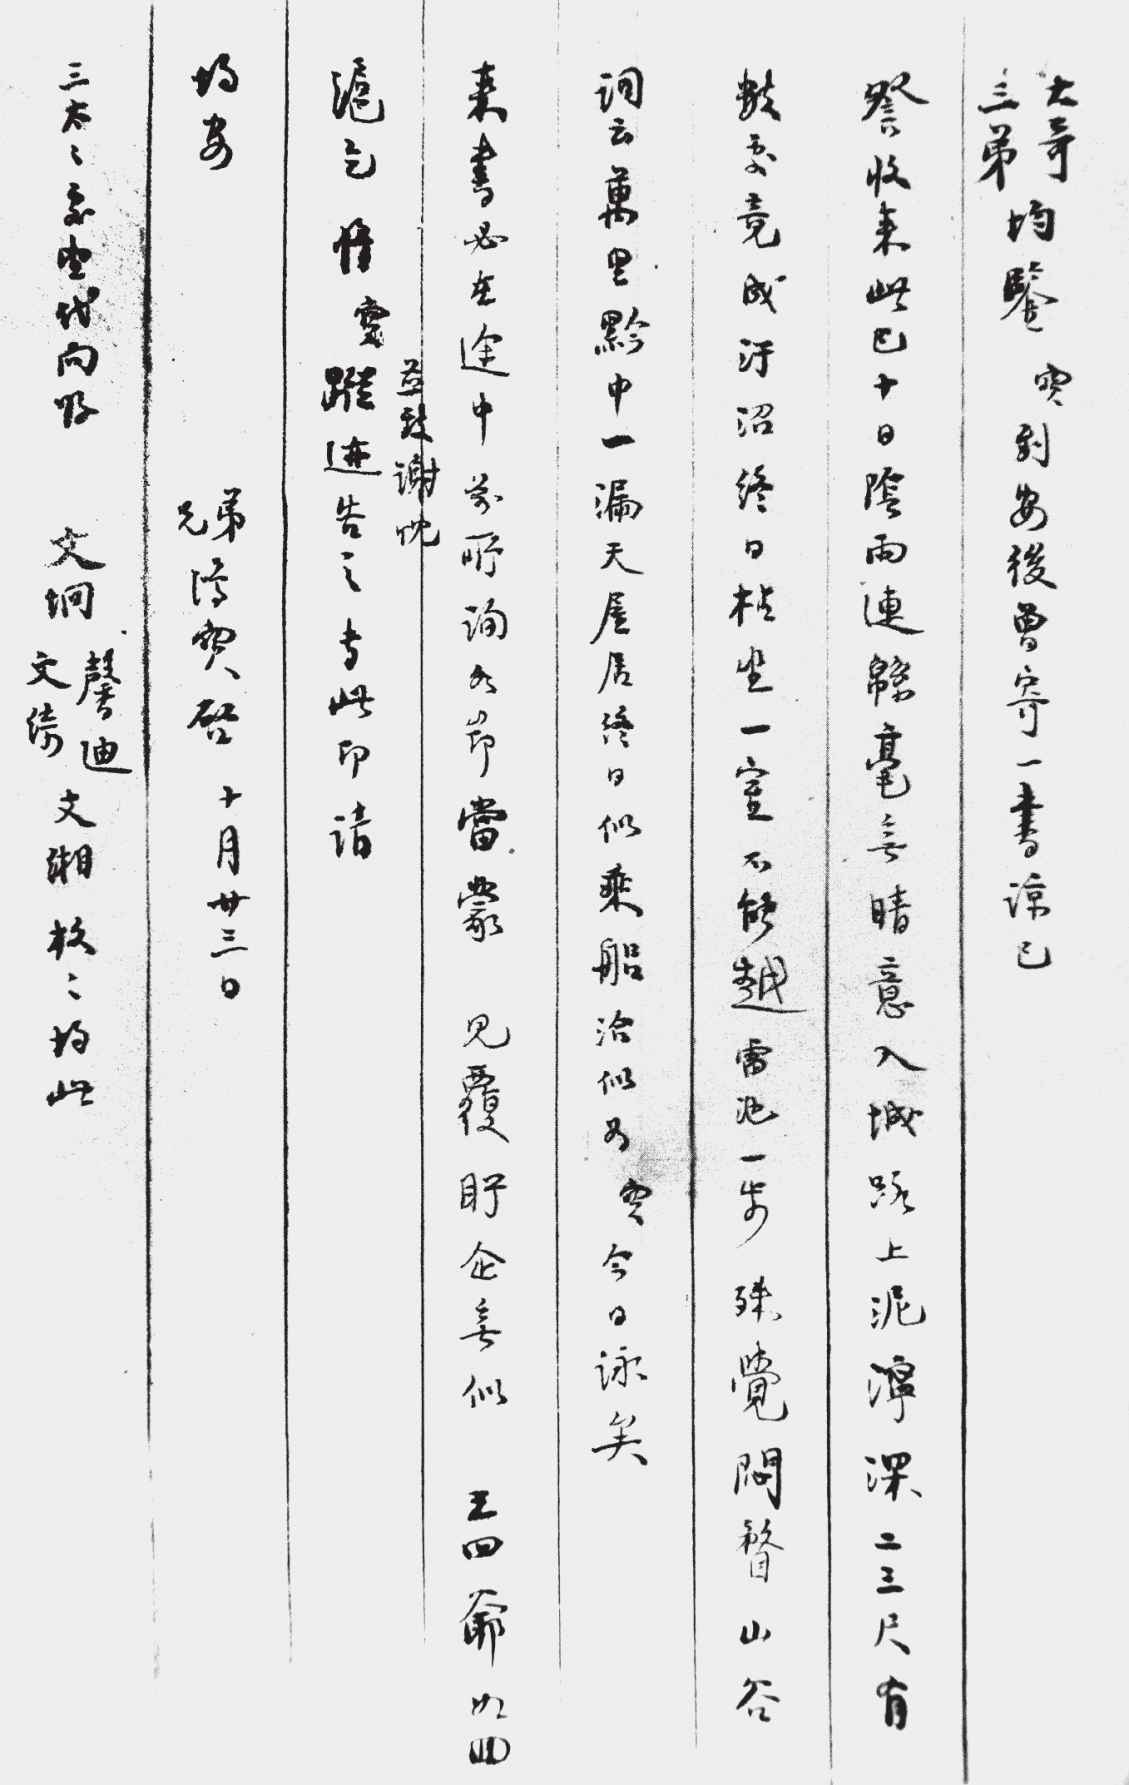 大哥三弟均鑒 寶到安後曾寄一書諒已
詧收來此已十日陰雨連緜毫無晴意入城路上泥濘深二三尺有
數處竟成汙沼終日枯坐一室不能越雷池一步殊覺悶瞀山谷
詞云萬里黔中一漏天屋居終日似乘船洽似為寶今日詠矣
來書必在途中前所詢各節當蒙 見覆盱企無似 王四爺如回
滬乞 將寶蹤迹告之專此即請
並致謝忱
均安
弟兄濬寶啓 十月廿三日
三太太前堂代問好 文坰 馨迪 文綺 文湘 校校均此